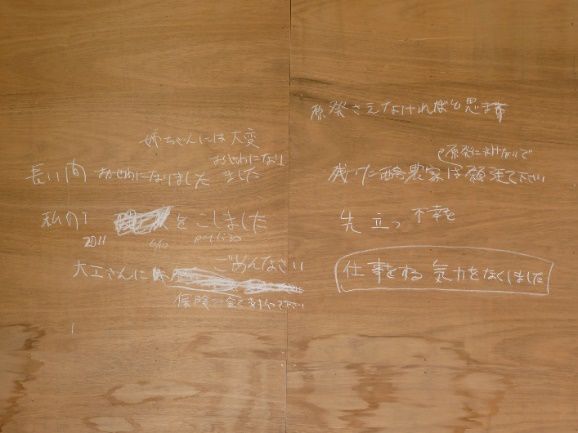 原発さえなければと思ます
残った酪農家は
原発にまけないで
願って下さい
先立つ不幸を
仕事をする気力をなくしました
姉ちゃんには大変
おせわになり
ました
長い間おせわになりました
私の
をこしました
2011 6/10 PM1:30
ごめんなさい
大工さんに
保険で全て支払って下さい